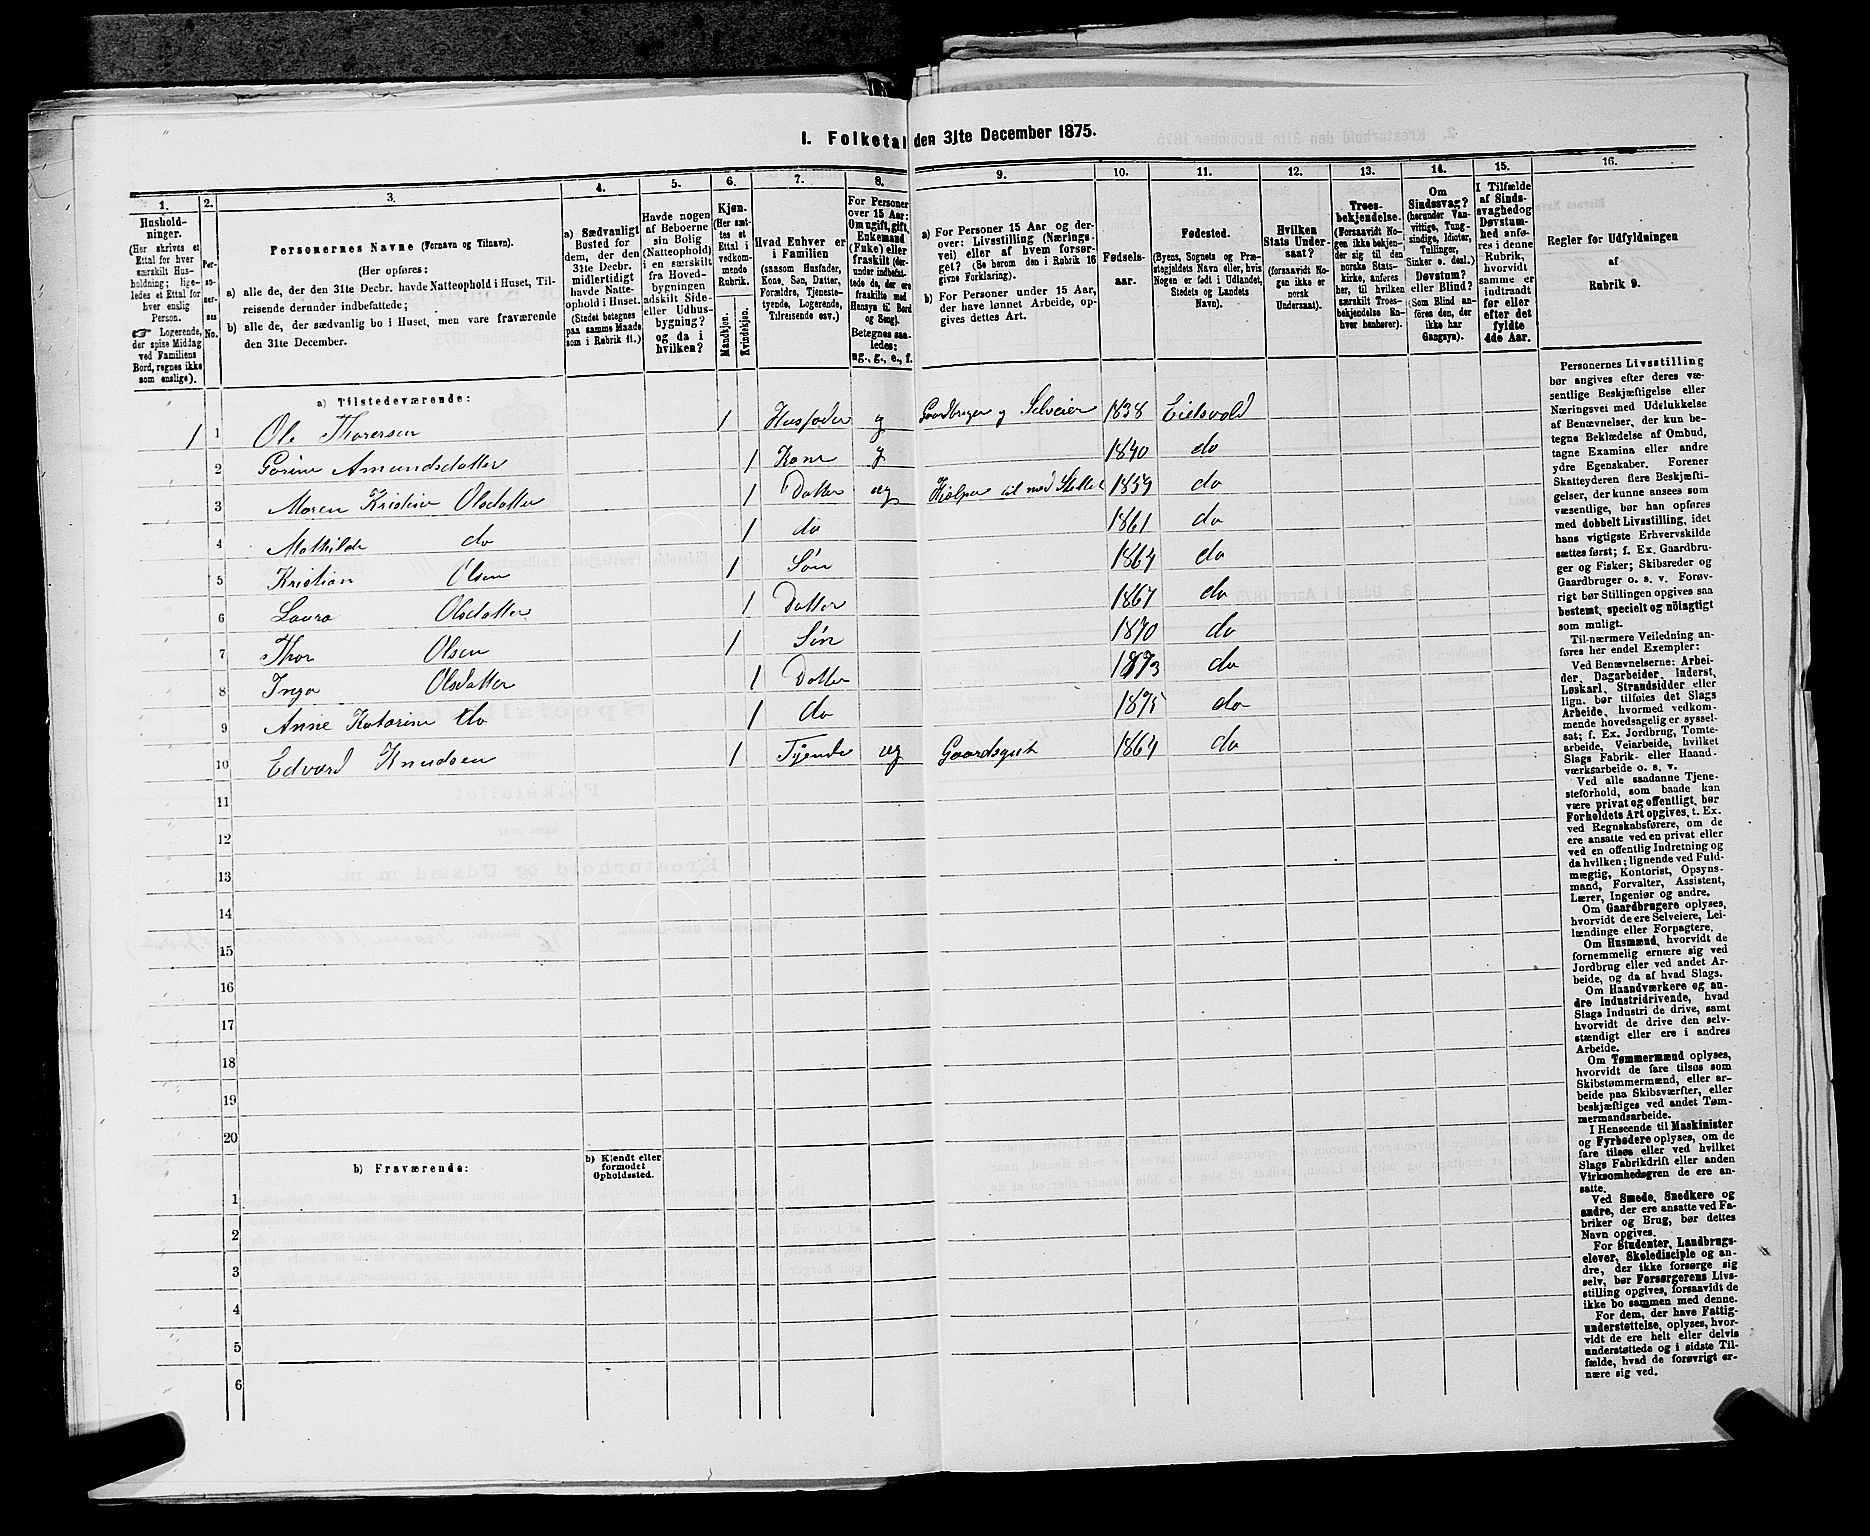 I. Folketal den 31te December 1875.
1. 2. 3. 4. 5. 6. 7. 8. 9. 10. 11. 12. 13. 14. 15. 16.
Hushold-
ninger.
(Her skrives et
Ettal for hver
særskilt Hus-
holdning; lige-
ledes et Ettal for
hver enslig
Person.
☞ Logerende,
der spise Middag
ved Familiens
Bord, regnes ikke
som enslige).
Per-
so-
ner-
nes
No.
Personernes Navne (Fornavn og Tilnavn).
(Her opføres:
a) alle de, der den 31te Decbr. havde Natteophold i Huset, Til-
reisende derunder indbefattede;
b) alle de, der sædvanlig bo i Huset, men vare fraværende
den 31te December.
a) Sædvanligt
Bosted for
dem, der den
31te Decbr.
midlertidigt
havde Natte-
ophold i Huset.
(Stedet betegnes
paa samme Maade
som i Rubrik 11.)
Havde nogen
af Beboerne
sin Bolig
(Natteophold)
i en særskilt
fra Hoved-
bygningen
adskilt Side-
eller Udhus-
bygning?
og da i
hvilken?
Kjøn.
(Her sæt-
tes et
Ettal i
vedkom-
mende
Rubrik.
Mandkjøn.
Kvindekjøn.
Hvad Enhver er
i Familien
(saasom Husfader,
Kone, Søn, Datter,
Forældre, Tjeneste-
tyende, Logerende,
Tilreisende osv.)
For Personer
over 15 Aar:
Om ugift, gift,
Enkemand
(Enke) eller
fraskilt (der-
under indbefat-
tede de, der ere
fraskilte med
Hensyn til Bord
og Seng).
Betegnes saa-
ledes:
ug., g., e., f.
a) For Personer 15 Aar og der-
over: Livsstilling (Nærings-
vei) eller af hvem forsør-
get? (Se herom den i Rubrik 16
givne Forklaring).
b) For Personer under 15 Aar,
der have lønnet Arbeide, op-
gives dettes Art.
Fødsels-
aar.
Fødested.
(Byens, Sognets og Præ-
stegjeldets Navn eller, hvis
Nogen er født i Udlandet,
Stedets og Landets
Navn).
Hvilken
Stats Under-
saat?
(forsaavidt No-
gen ikke er
norsk
Undersaat).
Troes-
bekjendelse.
(Forsaavidt No-
gen ikke bekjen-
der sig til den
norske Stats-
kirke, anføres
her, til hvilken
særskilt Troes-
bekjendelse En-
hver henhører).
Om
Sindssvag?
(herunder Van-
vittige, Tung-
sindige, Idioter,
Tullinger,
Sinker o. desl.)
Døvstum?
eller Blind?
(Som Blind an-
føres den, der
ikke har
Gangsyn).
I Tilfælde
af Sinds-
svaghed og
Døvstum-
hed anfø-
res i denne
Rubrik,
hvorvidt
samme er
indtraadt
før eller
efter det
fyldte
4de Aar.
Regler for Udfyldningen
af
Rubrik 9.
a) Tilstedeværende:
1 1 Ole Thoresen 1 Husfader g Gaardbruger og Selveier 1838 Eidsvold
2 Gorine Amundsdatter 1 Kone g 1840 do
3 Maren Kristine Olsdatter 1 Datter ug Hjælper til med Stellet 1859 do
4 Mathilde do 1 do 1861 do
5 Kristian Olsen 1 Søn 1864 do
6 Laura Olsdatter 1 Datter 1867 do
7 Thor Olsen 1 Søn 1870 do
8 Inga Olsdatter 1 Datter 1873 do
9 Anne Katarine do 1 do 1875 do
10 Edvard Knudsen 1 Tyende ug Gaardsgut 1864 do
11
12
13
14
15
16
17
18
19
20
b) Fraværende:
b) Kjendt eller
formodet
Opholdssted.
1
2
3
4
5
6
Personernes Livsstilling
bør angives efter deres væ-
sentlige Beskjæftigelse eller
Næringsvei med Udelukkelse
af Benævnelser, der kun be-
tegne Beklædelse af Ombud,
tagne Examina eller andre
ydre Egenskaber. Forener
Skatteyderen flere Beskjæfti-
gelser, der kunne ansees som
væsentlige, bør han opføres
med dobbelt Livsstilling, idet
hans vigtigste Erhvervskilde
sættes først; f. Ex. Gaardbru-
ger og Fisker; Skibsreder og
Gaardbruger o. s. v. Forøv-
rigt bør Stillingen opgives saa
bestemt, specielt og nöiagtigt
som muligt.
Til nærmere Veiledning an-
føres her endel Exempler:
Ved Benævnelserne: Arbei-
der, Dagarbeider, Inderst,
Løskarl, Strandsidder eller
lign. bør tilføies det Slags
Arbeide, hvormed vedkom-
mende hovedsagelig er syssel-
sat; f. Ex. Jordbrug, Tomte-
arbeide, Veiarbeide, hvilket
Slags Fabrik- eller Haand-
værksarbeide o. s. v.
Ved alle saadanne Tjene-
steforhold, som baade kan
være privat og offentligt, bør
Forholdets Art opgives, t. Ex.
ved Regnskabsførere, om de
ere ansatte ved en privat eller
ved en offentlig Indretning og
da hvilken; lignende ved Fuld-
mægtig, Kontorist, Opsyns-
mand, Forvalter, Assistent,
Lærer, Ingeniør og andre.
Om Gaardbrugere oplyses,
hvorvidt de ere Selveiere, Lei-
lændinge eller Forpagtere.
Om Husmænd, hvorvidt de
fornemmelig ernære sig ved
Jordbrug eller ved andet Ar-
beide, og da af hvad Slags.
Om Haandværkere og an-
dre Industridrivende, hvad
Slags Industri de drive, samt
hvorvidt de drive den selv-
stændigt eller ere i andres
Arbeide.
Om Tømmermænd oplyses,
hvorvidt de fare tilsøs som
Skibstømmermænd, eller ar-
beide paa Skibsværfter, eller
beskjæftiges ved andet Tøm-
mermandsarbeide.
I Henseende til Maskinister
og Fyrbødere oplyses, om de
fare tilsøs eller ved hvilket
Slags Fabrikdrift eller anden
Virksomhedsgren de ere an-
satte.
Ved Smede, Snedkere og
andre, der ere ansatte ved Fa-
briker og Brug, bør dettes
Navn opgives.
For Studenter, Landbrugs-
elever, Skoledisciple og an-
dre, der ikke forsørge sig
selv, bør Forsørgerens Livs-
stilling opgives, forsaavidt de
ikke bo sammen med denne.
For dem, der have Fattig-
understøttelse, oplyses, hvor-
vidt de ere helt eller delvis
understøttede og i sidste Til-
fælde, hvad de forøvrigt er-
nære sig ved.